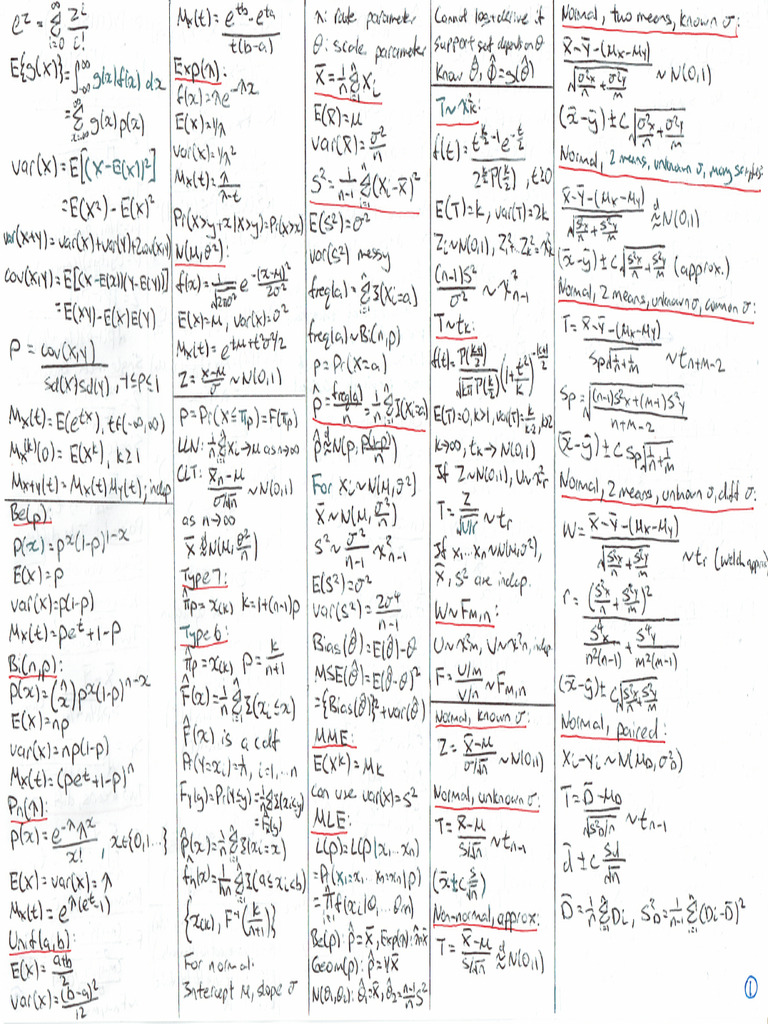 e^z = Σ_{i=0}^∞ z^i/i!
E{g(X)} = ∫_{-∞}^{∞} g(x)f(x) dx
= Σ_{x=-∞}^∞ g(x)p(x)
var(X) = E[(X-E(X))²]
= E(X²) - E(X)²
var(X+Y) = var(X)+var(Y)+2cov(X,Y)
cov(X,Y) = E[(X-E(X))(Y-E(Y))]
= E(XY) - E(X)E(Y)
ρ = cov(X,Y)/(sd(X)sd(Y)), -1≤ρ≤1
Mx(t) = E(e^{tX}), t∈(-∞,∞)
Mx^{(k)}(0) = E(X^k), k≥1
Mx+y(t) = Mx(t)My(t); indep
Be(p):
p(x) = p^x(1-p)^{1-x}
E(X) = p
var(X) = p(1-p)
Mx(t) = pe^t+1-p
Bi(n,p):
p(x) = (n x) p^x(1-p)^{n-x}
E(X) = np
var(X) = np(1-p)
Mx(t) = (pe^t+1-p)^n
Pn(λ):
p(x) = e^{-λ}λ^x/x!, x∈{0,1...}
E(X) = var(X) = λ
Mx(t) = e^{λ(e^t-1)}
Unif(a,b):
E(X) = (a+b)/2
var(X) = (b-a)²/12
Mx(t) = (e^{tb}-e^{ta})/(t(b-a))
Exp(λ):
f(x) = λe^{-λx}
E(X) = 1/λ
var(X) = 1/λ²
Mx(t) = λ/(λ-t)
Pr(X>y+x|X>y) = Pr(X>x)
N(μ,σ²):
f(x) = 1/√(2πσ²) e^{-(x-μ)²/2σ²}
E(X) = μ, var(X) = σ²
Mx(t) = e^{tμ+t²σ²/2}
Z = (X-μ)/σ ~ N(0,1)
p = Pr(X≤πp) = F(πp)
LLN: 1/n Σ_{i=1}^n Xi → μ as n→∞
CLT: (X̄n-μ)/(σ/√n) ~ N(0,1)
as n→∞
X̄ ≈^d N(μ, σ²/n)
Type 7:
π̂p = x(k) k = 1+(n-1)p
Type 6:
π̂p = x(k) p = k/(n+1)
F̂(x) = 1/n Σ_{i=1}^n I(xi≤x)
F̂(x) is a cdf
Pr(Y=xi) = 1/n, i=1,...n
Fy(y) = Pr(Y≤y) = 1/n Σ_{i=1}^n I(xi≤y)
= F̂(y)
p̂(x) = 1/n Σ_{i=1}^n I(xi=x)
f̂h(x) = 1/hn Σ_{i=1}^n I(a≤xi<b)
{x(k), F^{-1}(k/(n+1))}
For normal:
Intercept μ, slope σ
λ: rate parameter
θ: scale parameter
X̄ = 1/n Σ_{i=1}^n Xi
E(X̄) = μ
var(X̄) = σ²/n
S² = 1/(n-1) Σ_{i=1}^n (Xi-X̄)²
E(S²) = σ²
var(S²) messy
freq(a) = Σ_{i=1}^n I(Xi=a)
freq(a) ~ Bi(n,p)
p = Pr(X=a)
p̂ = freq(a)/n = 1/n Σ_{i=1}^n I(Xi=a)
p̂ ≈^d N(p, p(1-p)/n)
For Xi ~ N(μ,σ²)
X̄ ~ N(μ, σ²/n)
S² ~ σ²/(n-1) χ²_{n-1}
E(S²) = σ²
var(S²) = 2σ⁴/(n-1)
Bias(θ̂) = E(θ̂) - θ
MSE(θ̂) = E(θ̂-θ)²
= {Bias(θ̂)}² + var(θ̂)
MME:
E(X^k) = μk
can use var(X) = S²
MLE:
L(p) = L(p|x1...xn)
= Pr(X1=x1...Xn=xn|p)
= Π_{i=1}^n f(xi|θ1...θm)
Be(p): p̂ = X̄, Exp(λ): λ̂ = X̄
Geom(p): p̂ = 1/X̄
N(θ1,θ2): θ̂1 = X̄, θ̂2 = (n-1)/n S²
Cannot log+derive if
support set depends on θ
Know θ̂, φ̂ = g(θ̂)
T ~ χ²k:
f(t) = t^{k/2-1}e^{-t/2}/(2^{k/2}Γ(k/2)), t≥0
E(T) = k, var(T) = 2k
Zi ~ N(0,1), Z1²+...Zk² ~ χ²k
(n-1)S²/σ² ~ χ²_{n-1}
T ~ tk:
f(t) = Γ((k+1)/2)/(√(kπ)Γ(k/2)) (1+t²/k)^{-(k+1)/2}
E(T)=0, k>1, var(T)=k/(k-2), k>2
k→∞, tk → N(0,1)
If Z ~ N(0,1), U ~ χ²r
T = Z/√(U/r) ~ tr
If x1...xn ~ N(μ,σ²),
X̄, S² are indep.
W ~ Fm,n:
U ~ χ²m, V ~ χ²n, indep
F = (U/m)/(V/n) ~ Fm,n
Normal, known σ:
Z = (X̄-μ)/(σ/√n) ~ N(0,1)
Normal, unknown σ:
T = (X̄-μ)/(S/√n) ~ t_{n-1}
(x̄ ± c s/√n)
Non-normal, approx:
T = (X̄-μ)/(S/√n) ≈^d N(0,1)
Normal, two means, known σ:
(X̄-Ȳ-(μx-μy))/√(σ²x/n+σ²y/m) ~ N(0,1)
(x̄-ȳ) ± c√(σ²x/n+σ²y/m)
Normal, 2 means, unknown σ, many samples
(X̄-Ȳ-(μx-μy))/√(S²x/n+S²y/m) ≈^d N(0,1)
(x̄-ȳ) ± c√(s²x/n+s²y/m) (approx.)
Normal, 2 means, unknown σ, common σ:
T = (X̄-Ȳ-(μx-μy))/(Sp√(1/n+1/m)) ~ t_{n+m-2}
Sp = √(((n-1)S²x+(m-1)S²y)/(n+m-2))
(x̄-ȳ) ± c Sp√(1/n+1/m)
Normal, 2 means, unknown σ, diff σ:
W = (X̄-Ȳ-(μx-μy))/√(S²x/n+S²y/m) ~ tr (Welch approx)
r = (S²x/n+S²y/m)²/(S⁴x/(n²(n-1))+S⁴y/(m²(m-1)))
(x̄-ȳ) ± c√(s²x/n+s²y/m)
Normal, paired:
Xi-Yi ~ N(μD,σ²D)
T = (D̄-μD)/√(S²D/n) ~ t_{n-1}
d̄ ± c Sd/√n
D̄ = 1/n Σ_{i=1}^n Di, S²D = 1/(n-1) Σ_{i=1}^n (Di-D̄)²
1